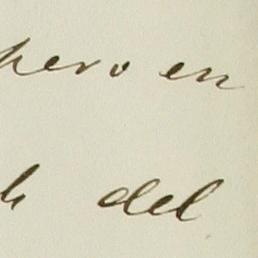 pero en
del